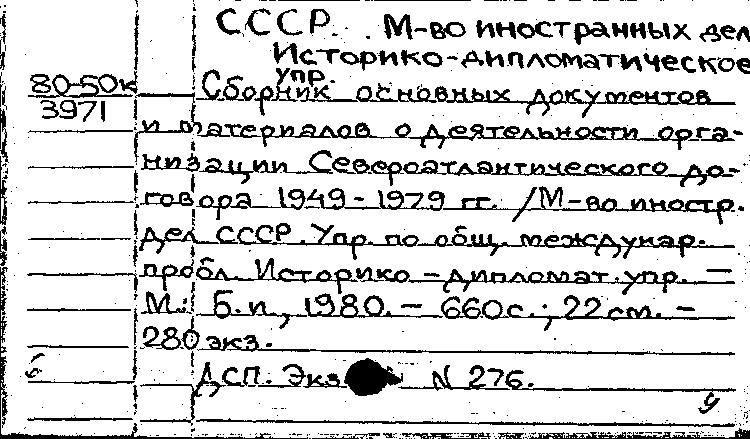 СССР. М-во иностранных дел
Историко-дипломатическое
упр.
80-50к Сборник основных документов
3971
и материалов о деятельности орга-
низации Североатлантического до-
говора 1949-1979 гг. /М-во иностр.
дел СССР. Упр. по общ. междунар.
пробл. Историко-дипломат. упр. —
М.: Б. и., 1980. — 660 с.; 22 см. —
280 экз.
ДСП. Экз N 276.